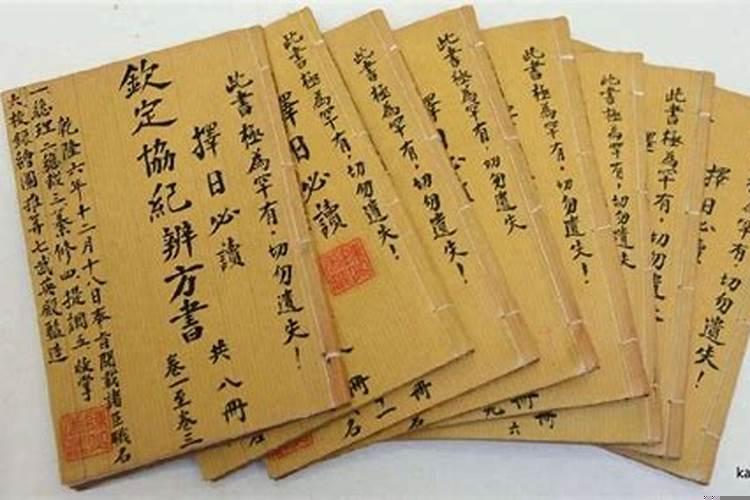 此書極為罕有，切勿遺失！
擇日必讀
共八冊
卷一至卷三
欽定協紀辨方書
乾隆六年十二月十八日奉旨開載諸臣職名
一總理二總裁三纂修四提調五收掌
六校錄繪圖推算七武英殿監造
此書極為罕有，切勿遺失！
擇日必讀
冊
名
此書極為罕有，切勿遺失！
擇日必讀
冊
名
此書極為罕有，切勿遺失
冊
此書極為罕有，切勿遺失！
冊
六
此書極為罕有，切勿遺失
此書極為罕有，切勿遺
罕有，切勿遺失！
擇日必讀
ka